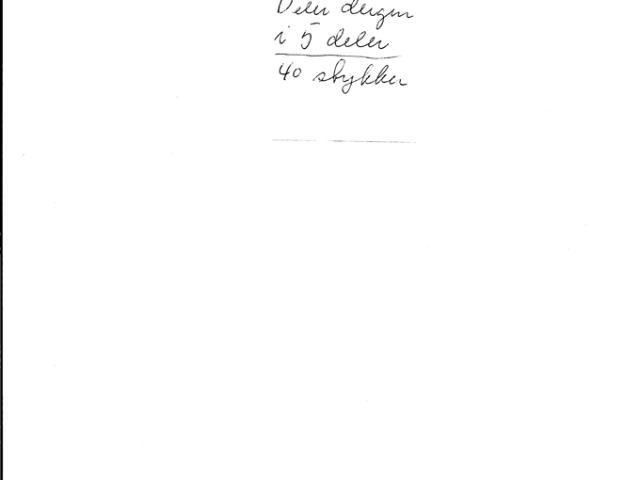 Deler deigen
i 5 deler
40 stykker